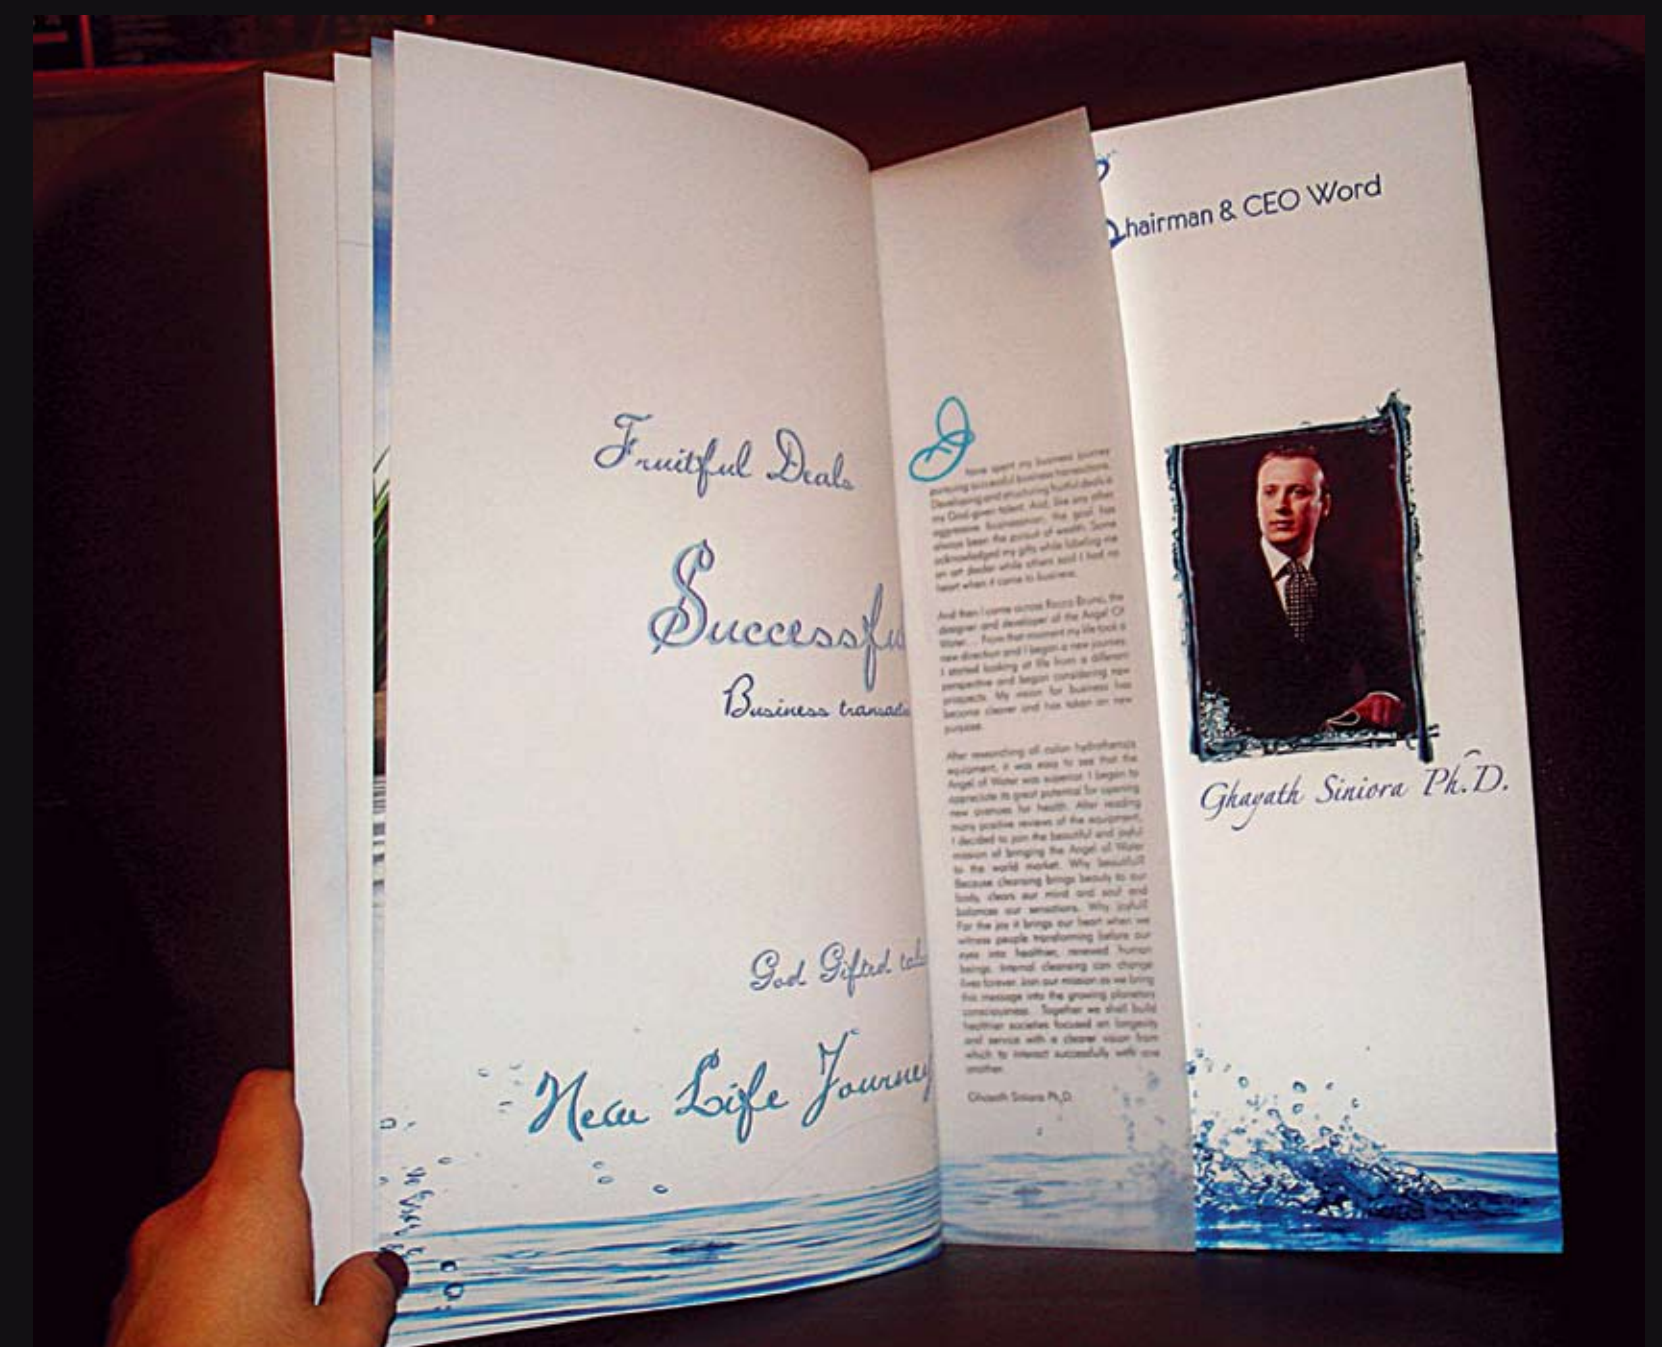 Fruitful Deals
Successfu
Business transact
God Gifted tale
New Life Journey
I have spent my business journey
pursuing successful business transactions.
Developing and structuring fruitful deals is
my God-given talent. And, like any other
aggressive businessman, the goal has
always been the pursuit of wealth. Some
acknowledged my gifts while labeling me
an art dealer while others said I had no
heart when it came to business.
And then I came across Rocco Bruno, the
designer and developer of the Angel Of
Water... From that moment my life took a
new direction and I began a new journey.
I started looking at life from a different
perspective and began considering new
prospects. My vision for business has
become clearer and has taken on new
purpose.
After researching all colon hydrotherapy
equipment, it was easy to see that the
Angel of Water was superior. I began to
appreciate its great potential for opening
new avenues for health. After reading
many positive reviews of the equipment,
I decided to join the beautiful and joyful
mission of bringing the Angel of Water
to the world market. Why beautiful?
Because cleansing brings beauty to our
body, clears our mind and soul and
balances our sensations. Why joyful?
For the joy it brings our heart when we
witness people transforming before our
eyes into healthier, renewed human
beings. Internal cleansing can change
lives forever. Join our mission as we bring
this message into the growing planetary
consciousness. Together we shall build
healthier societies focused on longevity
and service with a clearer vision from
which to interact successfully with one
another.
Ghayath Siniora Ph.D.
Chairman & CEO Word
Ghayath Siniora Ph.D.